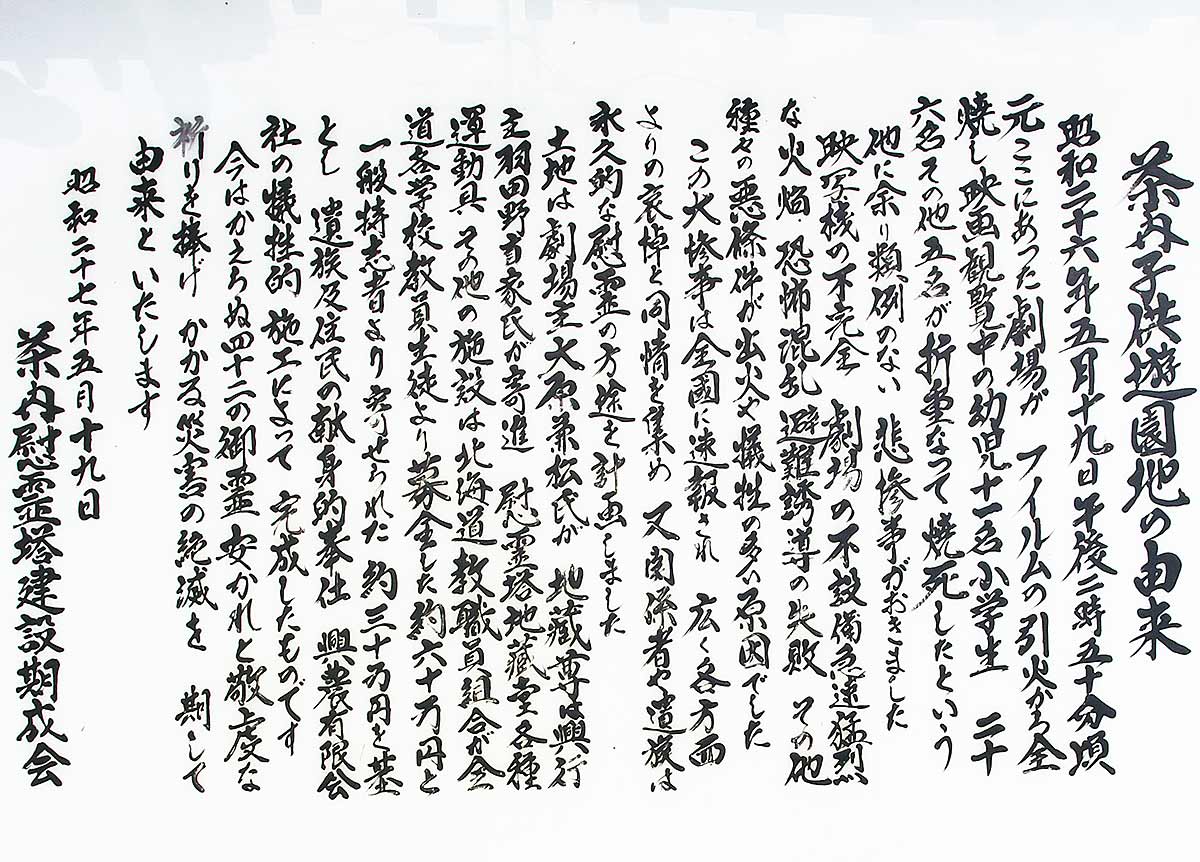 茶内子供遊園地の由来
昭和二十六年五月十九日午後二時五十分頃
元ここにあった劇場が フイルムの引火から全
焼し映画観覧中の幼児十一名小学生 二十
六名その他五名が折重なって 焼死したという
他に余り類例のない 悲惨事がおきました
映写機の不完全 劇場の不設備急速猛烈
な火焔 恐怖混乱 避難誘導の失敗 その他
種々の悪條件が出火や犠牲の多い原因でした
この大惨事は全國に速報され 広く各方面
よりの哀悼と同情を集め 又関係者や遺族は
永久的な慰霊の方途を計画しました
土地は劇場主大原兼松氏が 地蔵尊は興行
主羽田野吉家氏が寄進 慰霊塔地蔵堂各種
運動具 その他の施設は北海道教職員組合が全
道各学校教員生徒より募金した約六十万円と
一般特志者より寄せられた 約三十万円を基
とし 遺族及住民の献身的奉仕 興農有限会
社の犠牲的施工によって 完成したものです
今はかえらぬ四十二の御霊 安かれと敬虔な
祈りを捧げ かかる災害の絶滅を 期して
由来といたします
昭和二十七年五月十九日
茶内慰霊塔建設期成会